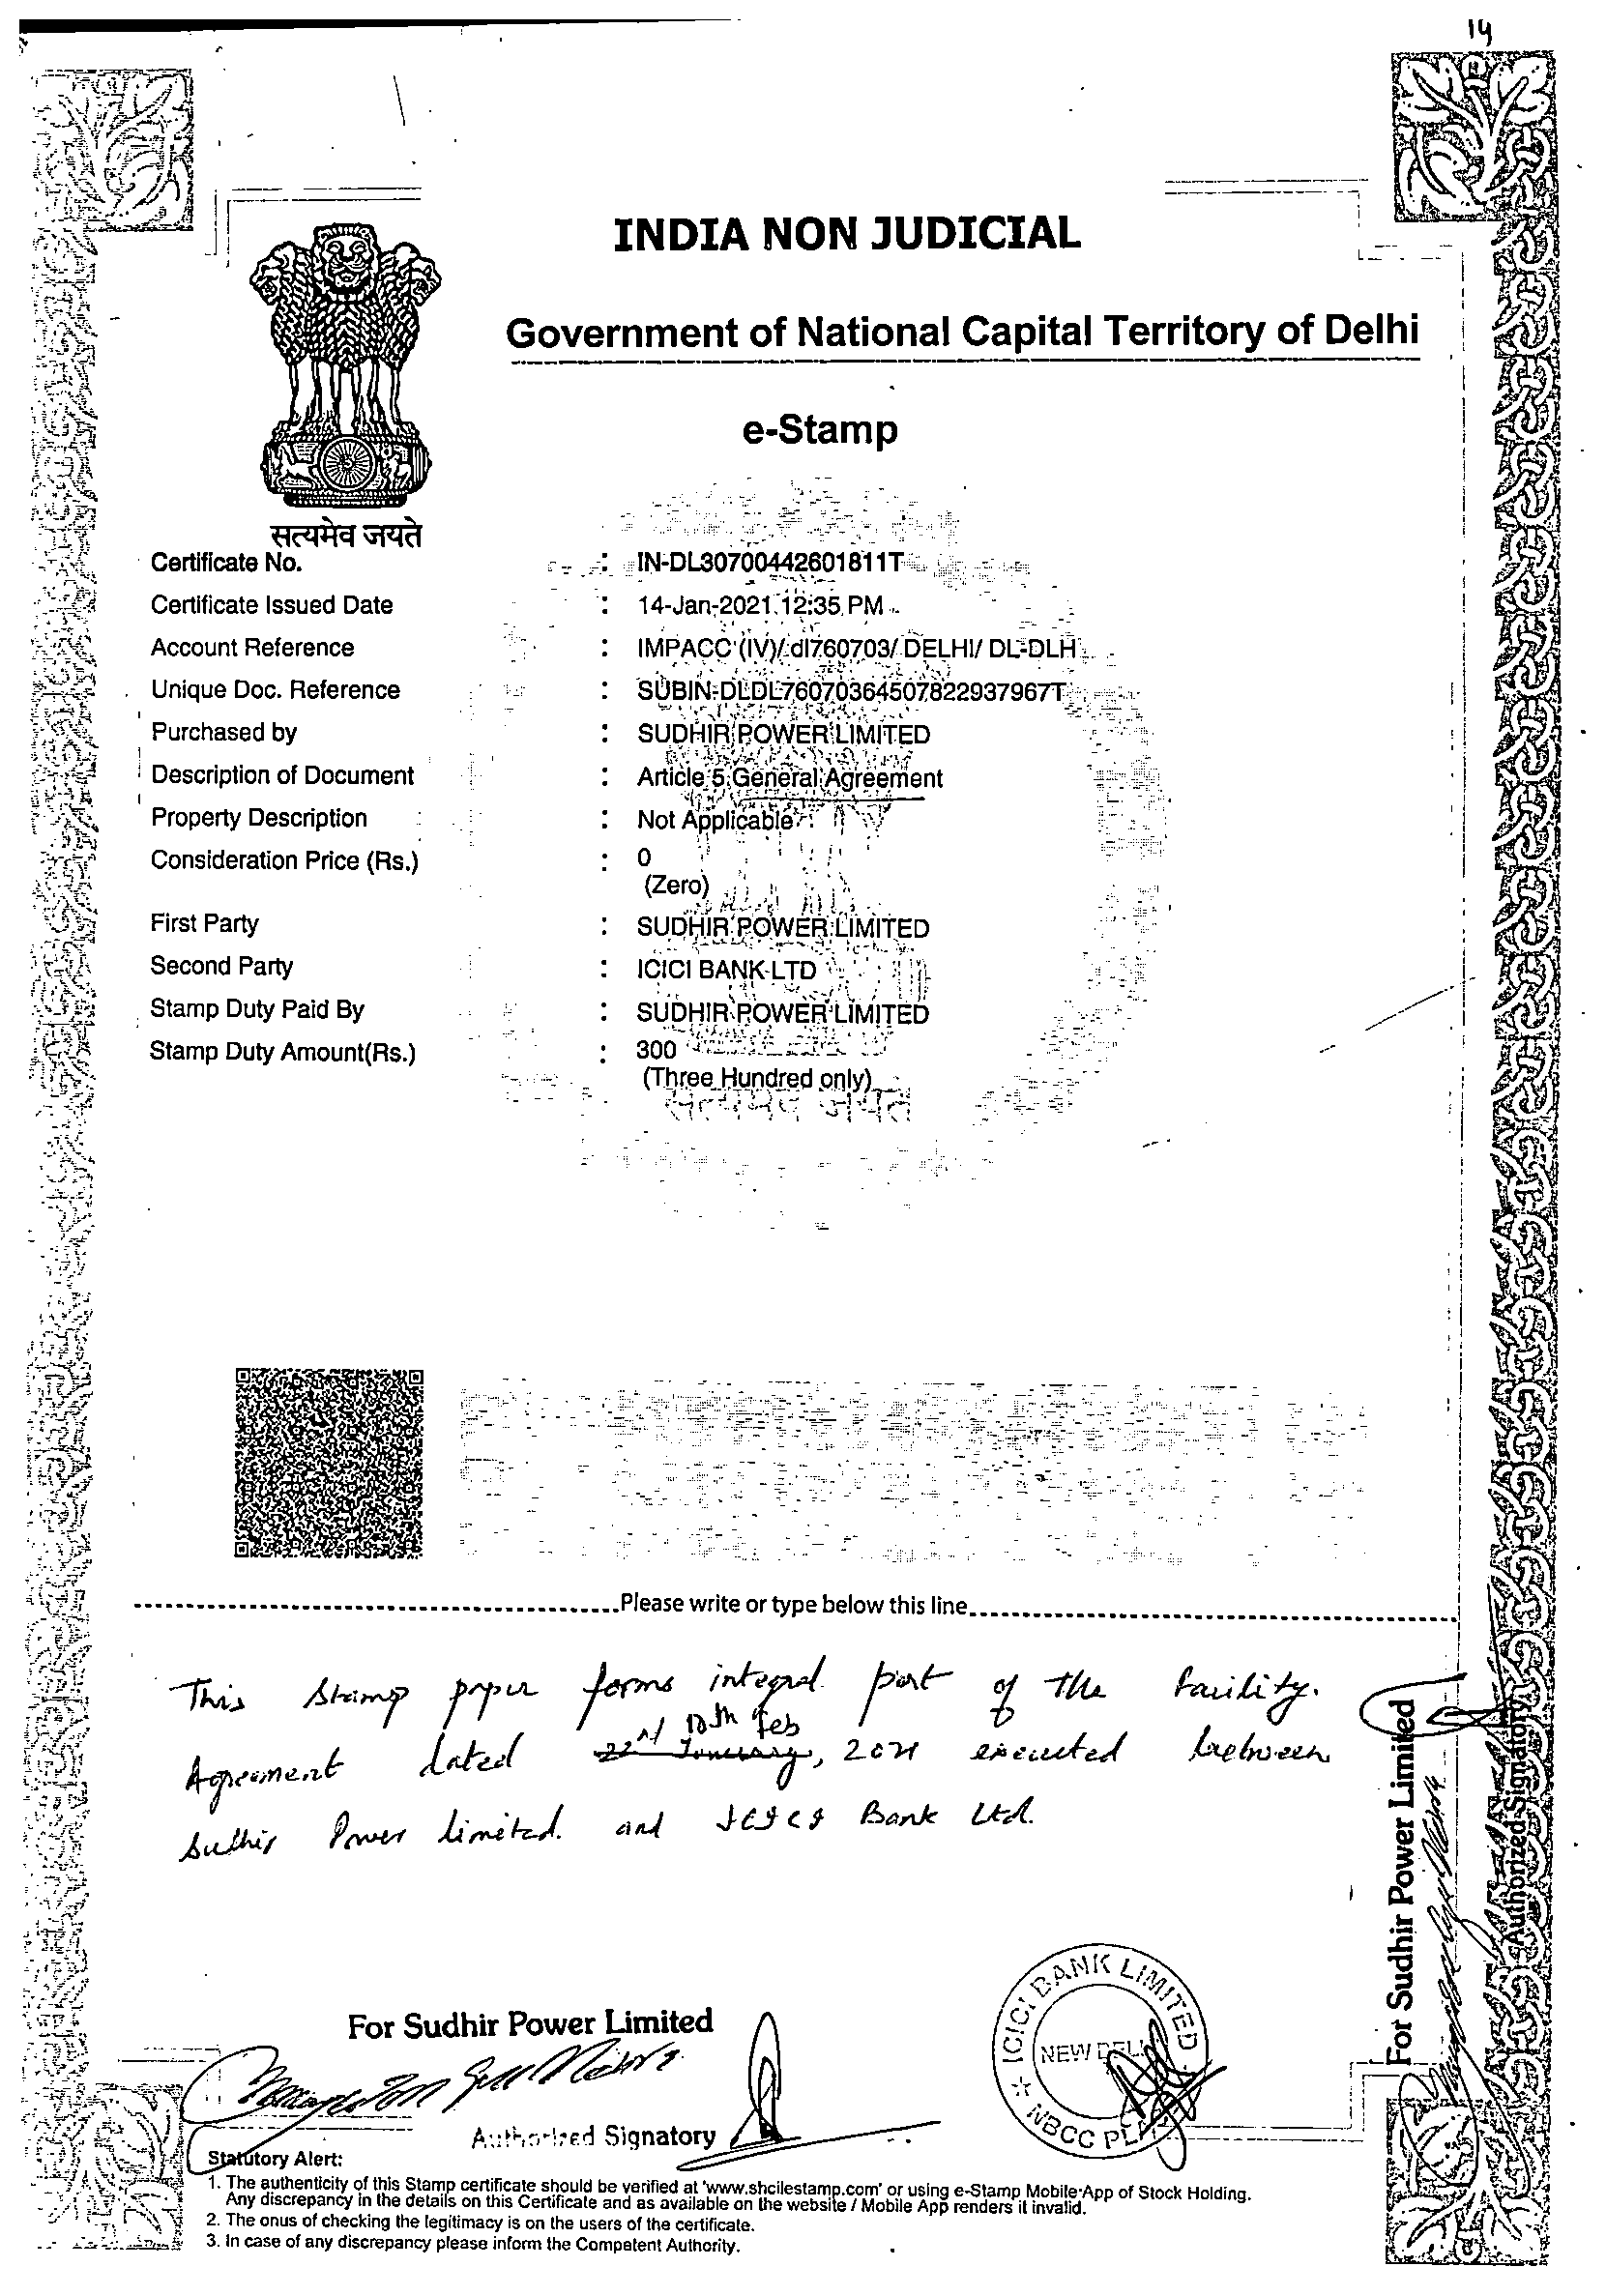 14
INDIA NON JUDICIAL
Government of National Capital Territory of Delhi
e-Stamp
सत्यमेव जयते
Certificate No. : IN-DL30700442601811T
Certificate Issued Date : 14-Jan-2021 12:35 PM
Account Reference : IMPACC (IV)/ dl760703/ DELHI/ DL-DLH
Unique Doc. Reference : SUBIN-DLDL76070364507822937967T
Purchased by : SUDHIR POWER LIMITED
Description of Document : Article 5 General Agreement
Property Description : Not Applicable
Consideration Price (Rs.) : 0
(Zero)
First Party : SUDHIR POWER LIMITED
Second Party : ICICI BANK LTD
Stamp Duty Paid By : SUDHIR POWER LIMITED
Stamp Duty Amount(Rs.) : 300
(Three Hundred only)
सत्यमेव जयते
Please write or type below this line
This Stamp paper forms integral part of the Facility
Agreement dated 22nd January, 10th Feb 2021 executed between
Sudhir Power Limited. and ICICI Bank Ltd.
For Sudhir Power Limited
Authorized Signatory
ICICI BANK LIMITED
NEW DELHI
NBCC
For Sudhir Power Limited
Authorized Signatory
Statutory Alert:
1. The authenticity of this Stamp certificate should be verified at 'www.shcilestamp.com' or using e-Stamp Mobile App of Stock Holding.
Any discrepancy in the details on this Certificate and as available on the website / Mobile App renders it invalid.
2. The onus of checking the legitimacy is on the users of the certificate.
3. In case of any discrepancy please inform the Competent Authority.